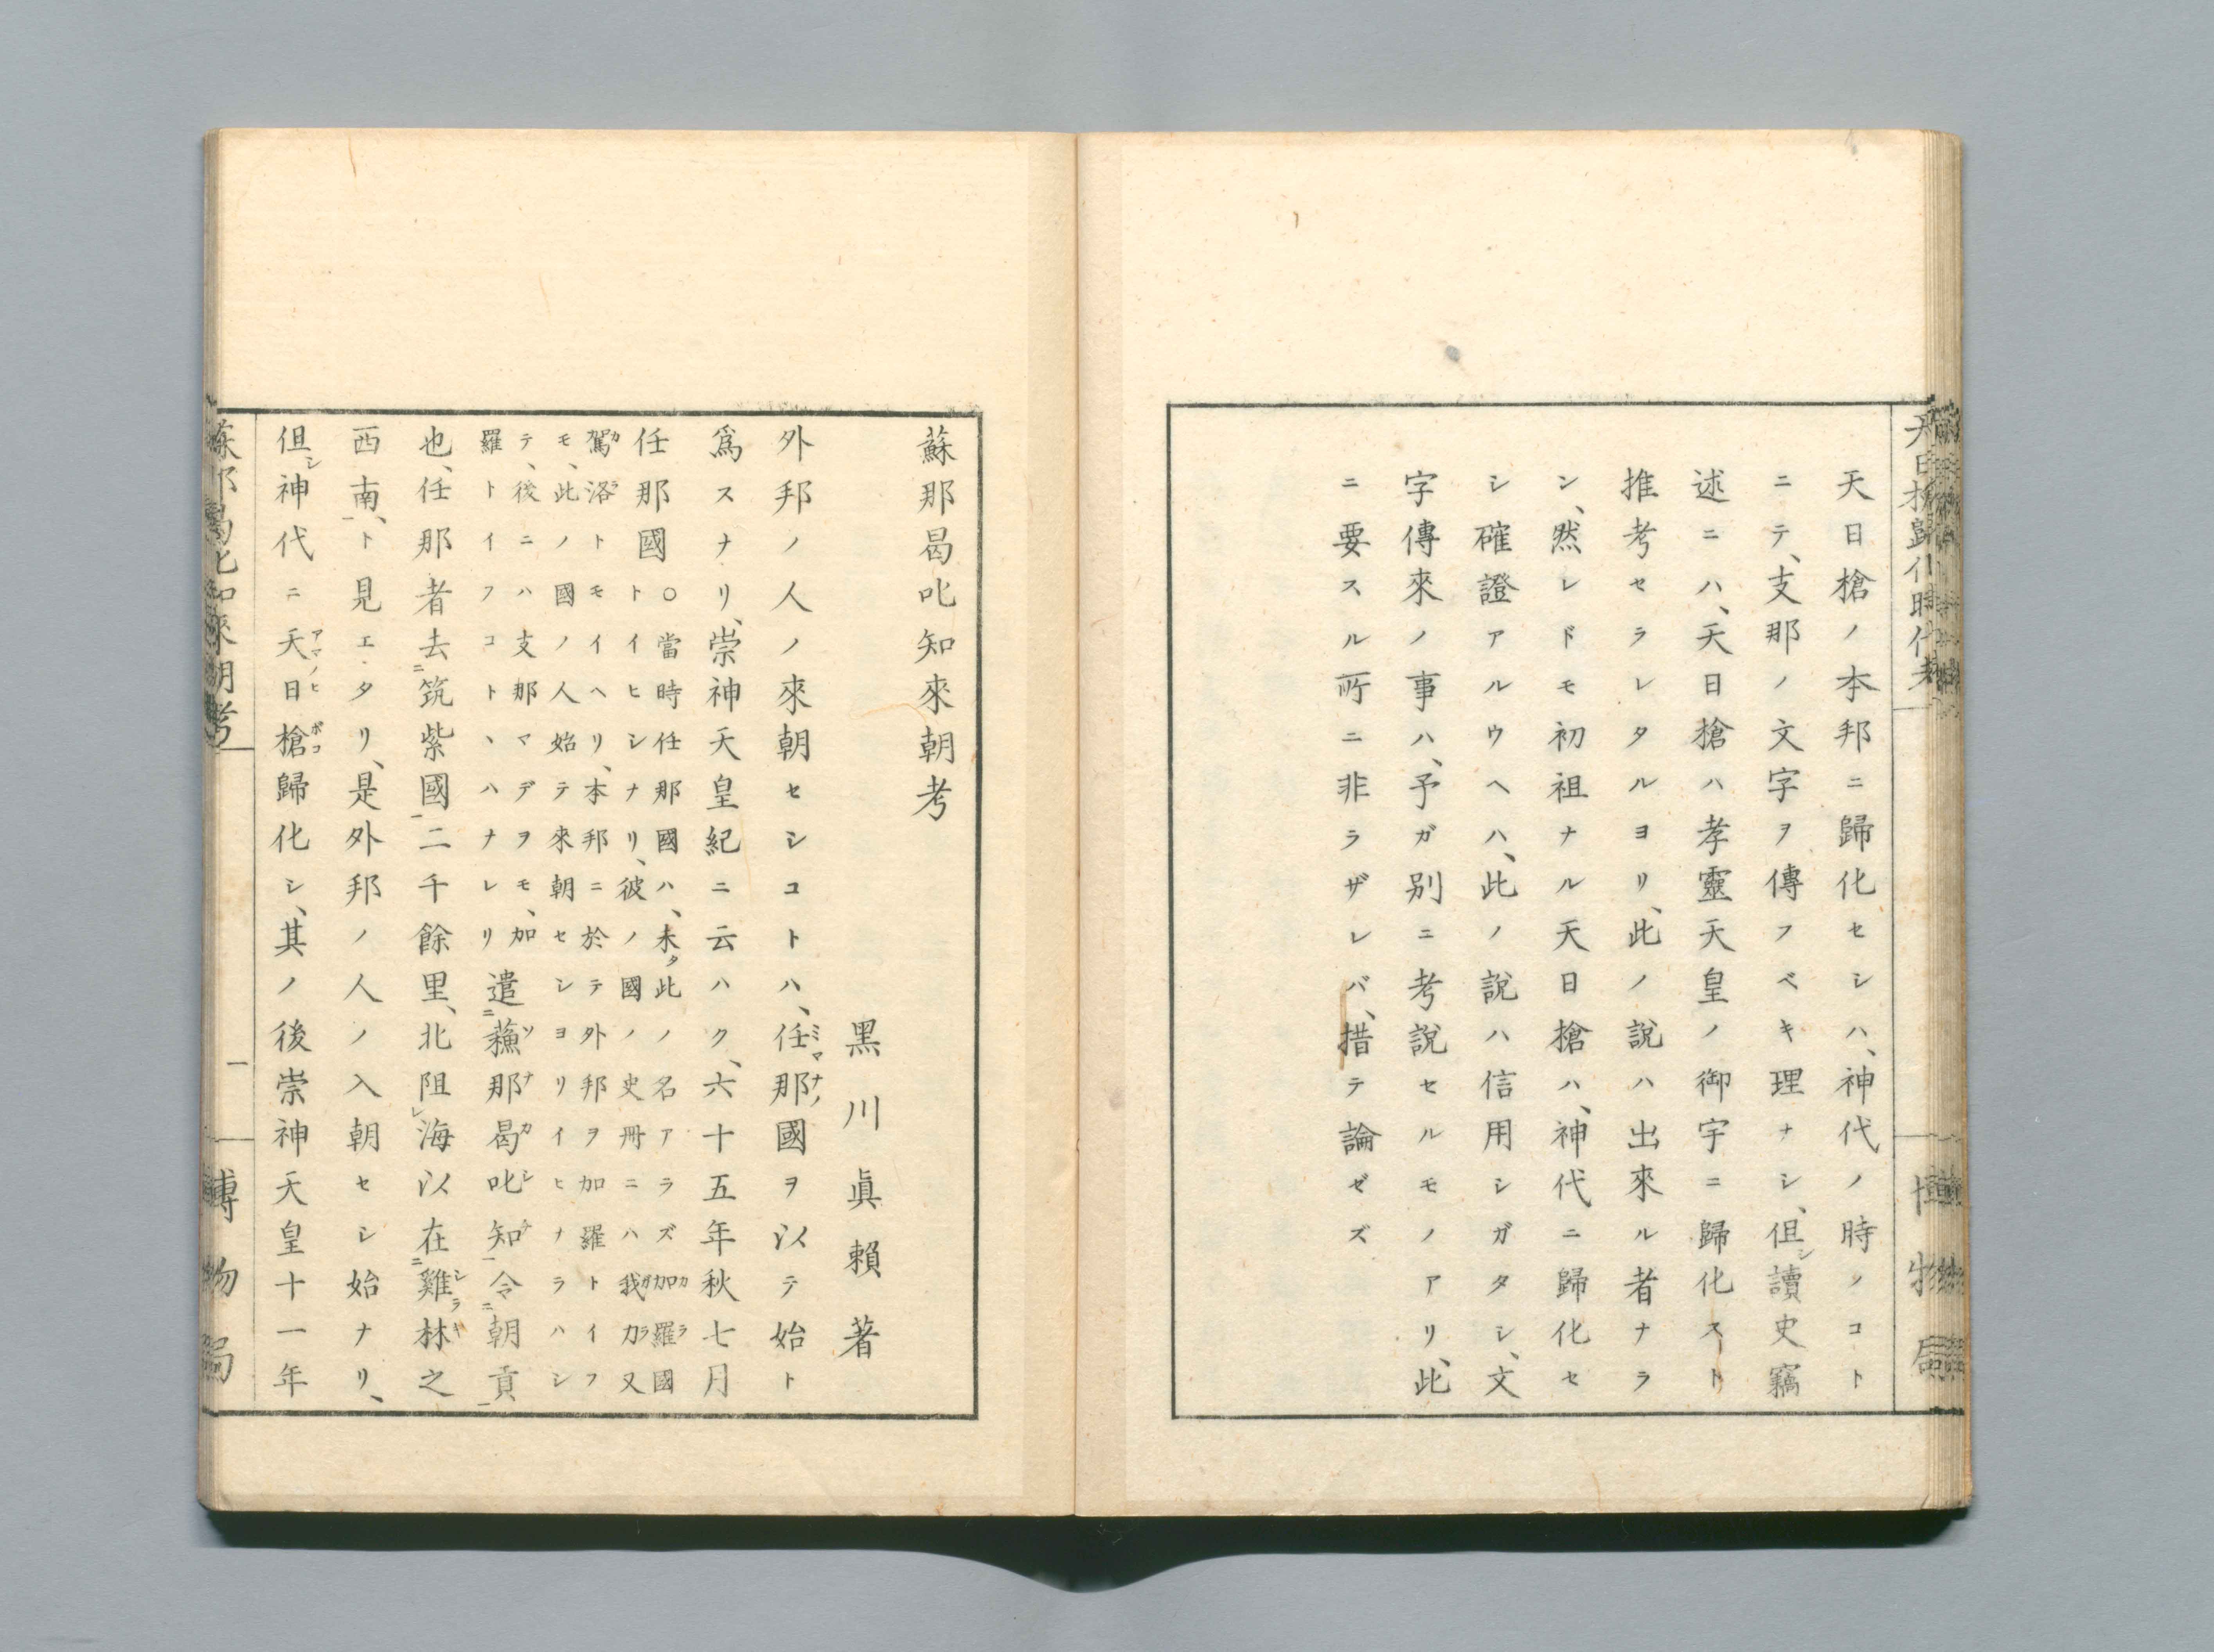 天日槍歸化時代考
博物局
天日槍ノ本邦ニ歸化セシハ、神代ノ時ノコト
ニテ、支那ノ文字ヲ傳フベキ理ナシ、但シ讀史竊
述ニハ、天日槍ハ孝靈天皇ノ御宇ニ歸化スト
推考セラレタルヨリ、此ノ說ハ出來ル者ナラ
ン、然レドモ初祖ナル天日槍ハ、神代ニ歸化セ
シ確證アルウヘハ、此ノ說ハ信用シガタシ、文
字傳來ノ事ハ、予ガ別ニ考說セルモノアリ、此
ニ要スル所ニ非ラザレバ、措テ論ゼズ
蘇那曷叱知來朝考
黑川眞賴著
外邦ノ人ノ來朝セシコトハ、任那國ヲ以テ始ト
爲スナリ、崇神天皇紀ニ云ハク、六十五年秋七月
任那國
〇當時任那國ハ、未タ此ノ名アラズ加羅國
トイヒシナリ、彼ノ國ノ史冊ニハ我力又
駕洛トモイヘリ、本邦ニ於テ外邦ヲ加羅トイフ
モ、此ノ國ノ人始テ來朝セシヨリイヒナラハシ
テ、後ニハ支那マデヲモ、加
羅トイフコトヽハナレリ
遣蘓那曷叱知令朝貢
也、任那者去筑紫國二千餘里、北阻海以在雞林之
西南、ト見エタリ、是外邦ノ人ノ入朝セシ始ナリ、
但シ神代ニ天日槍歸化シ、其ノ後崇神天皇十一年
蘇那曷叱知來朝考
一
博物局